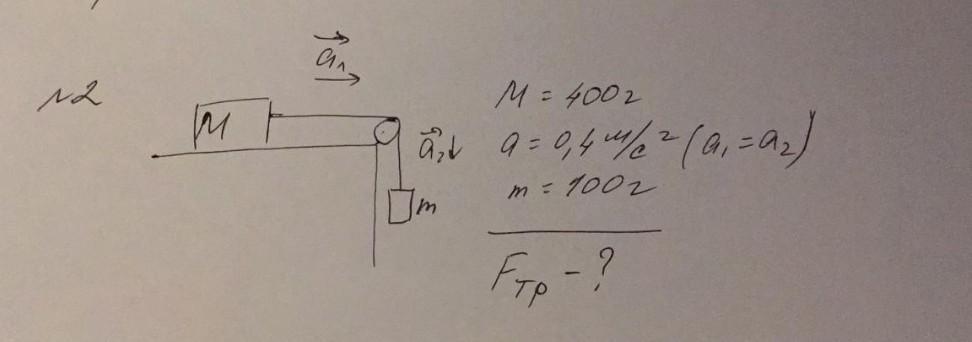 №2
a⃗₁
M
a⃗₂
m
M = 400г
a = 0,4 м/с² (a₁ = a₂)
m = 100г
Fтр - ?